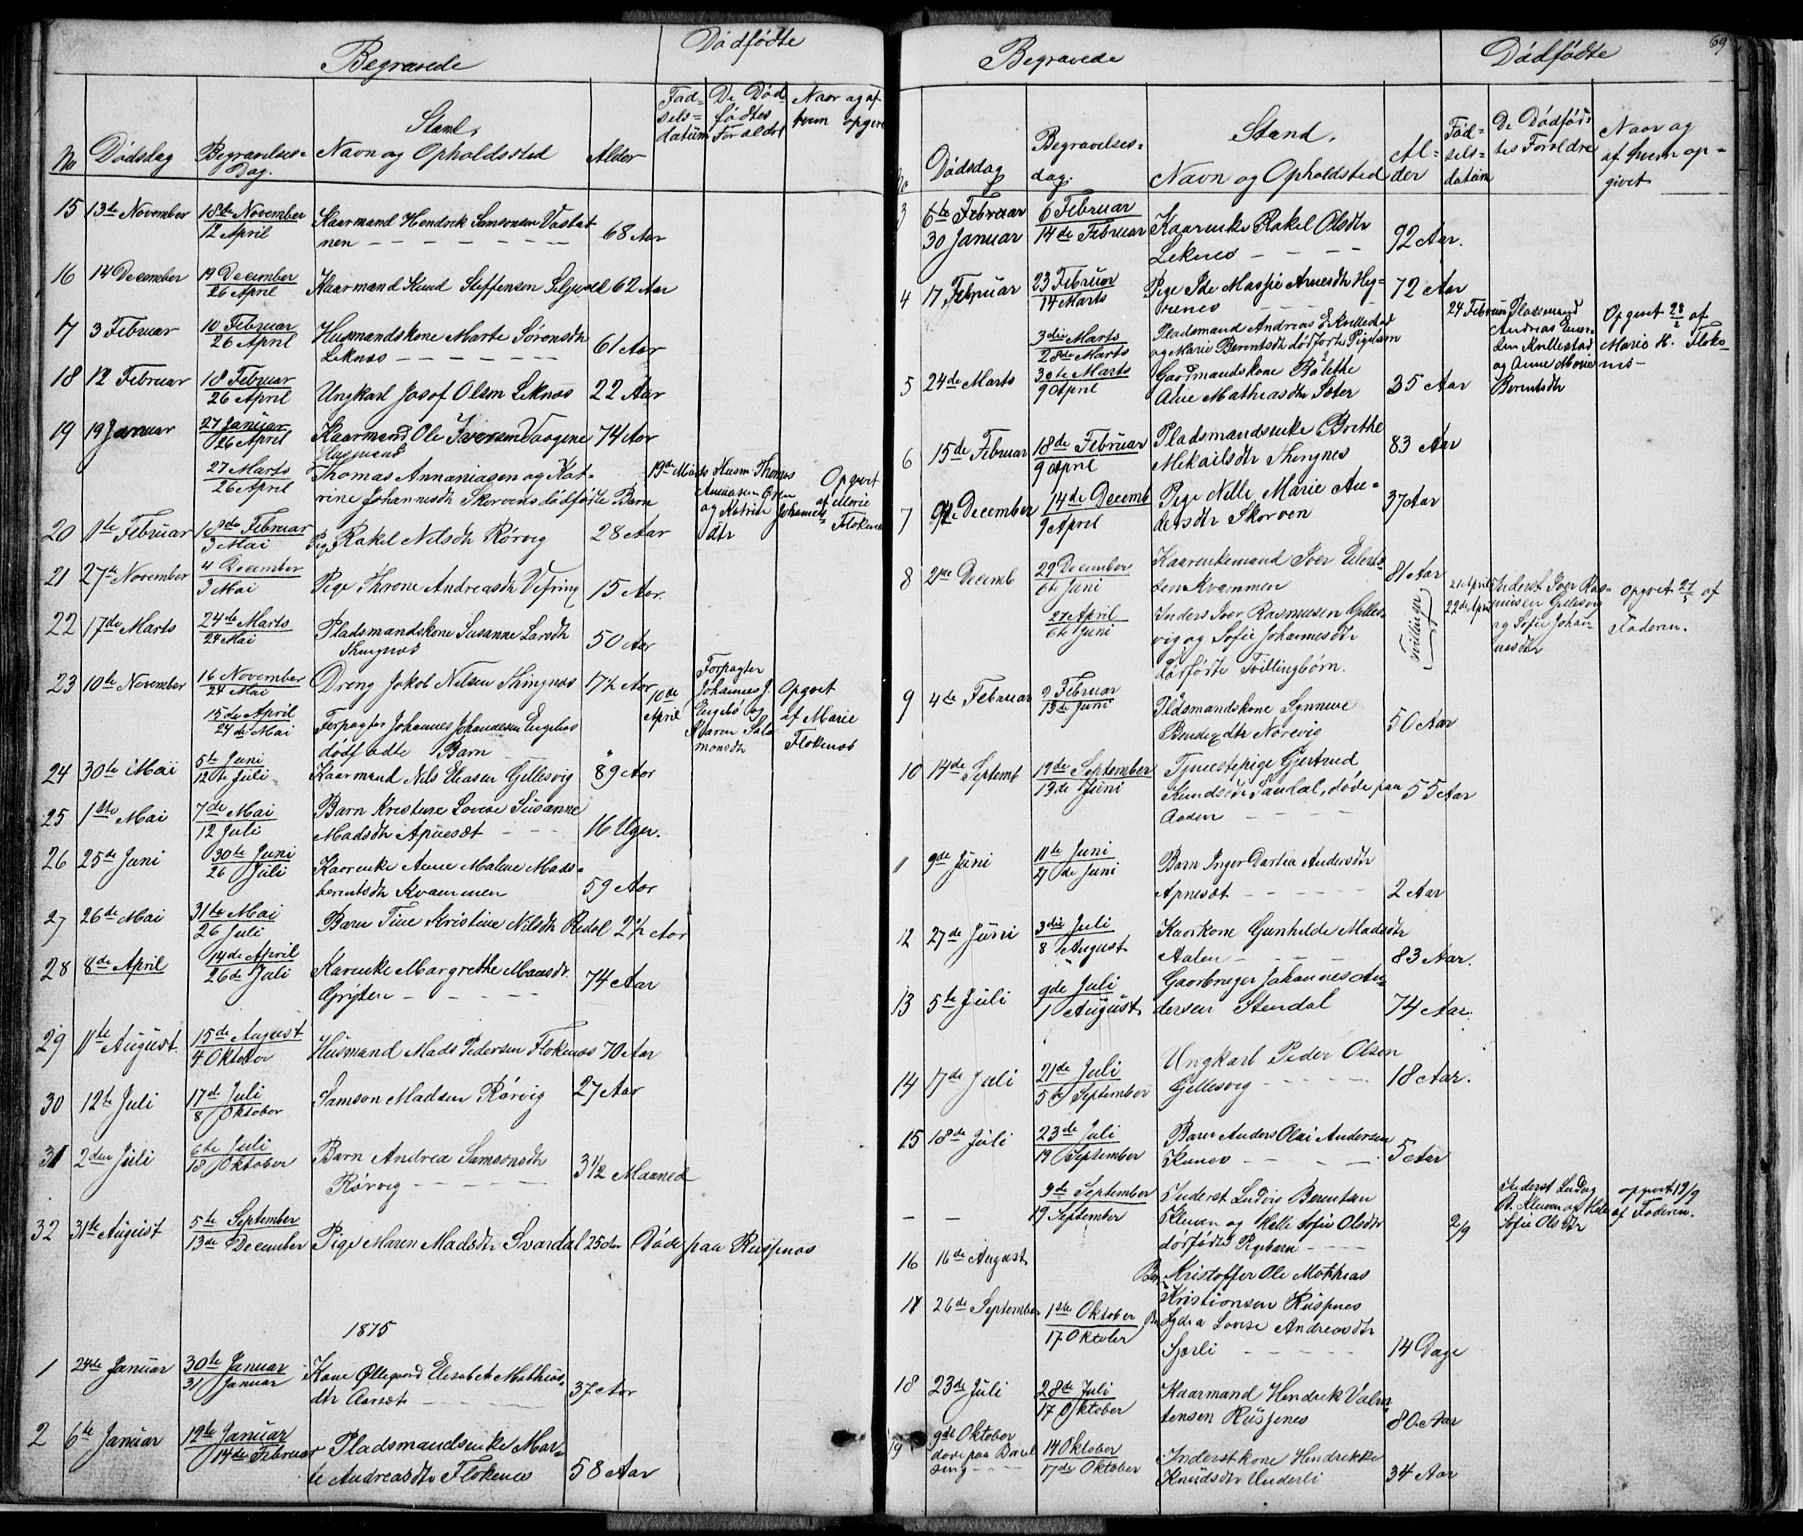 Begravede
Dødfødte
No
Dødsdag
Begravelses-
Dag.
Stand,
Navn og Opholdssted
Alder
Fød-
sels-
datum
De Død-
fødtes
Foreldre
Naar og af
hvem opgivet
15 13de November 18de November 12 April Kaarmand Hendrik Samsonsen
nen 68 Aar
16 14 December 19 December 26 April Kaarmand Knud Steffensen 62 Aar
17 3 Februar 10 Februar 26 April Husmandskone Marte Sørensdtr
Leknæs 61 Aar
18 12 Februar 18 Februar 26 April Ungkarl Josef Olsen Leknæs 22 Aar
19 19 Januar 27 Januar 26 April Kaarmand Ole Iversen Vaagene 74 Aar
Husmand
27 Marts 26 April Thomas Annaniasen og Kat-
rine Johannesdtr Skorvens dødfødte Barn
19de Marts Husm. Thomas
og Katrine Johannes-
dtr
Opgivet
af Marie
Flokenæs
20 11te Februar 18de Februar 3 Mai Pige Rakel Nilsdtr Rørvig 28 Aar
21 27de November 4 December 3 Mai Pige Throne Andreasdtr Vefring 15 Aar.
22 17de Marts 24de Marts 24 Mai Pladsmandskone Susanne Larsdtr
50 Aar
23 10de November 16 November 24 Mai Dreng Jakob Nilsen 7½ Aar
15de April 24de Mai Forpagter Johannes Johannesen Engebø
dødfødte Barn
10de
April
Forpagter
Johannes J.
Engebø og
Karen Salo-
monsdtr
Opgivet
af Marie
Flokenæs
24 30te Mai 5te Juni 12te Juli Kaarmand Nils Eliasen Gillesvig 89 Aar
25 1ste Mai 7de Mai 12 Juli Barn Kristine Lovise Susanne
Madsdtr Apnesæt 16 Uger.
26 25de Juni 30te Juni 26 Juli Kaarenke Anne Malene Mads-
berentsdtr Kvammen 59 Aar
27 26de Mai 31te Mai 26 Juli Barn Tine Kristine Nilsdtr Redal 2½ Aar
28 8de April 14de April 26de Juli Karenke Margrethe Monsdtr.
74 Aar
29 11te August 15de August 4 Oktober Husmand Mads Pedersen Flokenæs 70 Aar
30 12te Juli 17de Juli 8 Oktober Samson Madsen Rørvig 27 Aar
31 2den Juli 6te Juli 18 Oktober Barn Andrea Samsonsdtr
Rørvig 3½ Maaned
32 31te August 5te September 13de December Pige Maren Madsdtr Svardal 25 Aar Døde paa Risnæs
1875
1 24de Januar 30te Januar 31 Januar Kone Øllegaard Elisabet Mathias-
dtr Aarsæt 37 Aar
2 6te Januar 12te Januar 14de Februar Pladsmandsenke Mar-
te Andreasdtr Flokenæs 58 Aar
69
Begravede
Dødfødte
No
Dødsdag
Begravelses-
dag.
Stand,
Navn og Opholdssted
Al-
der
Fød-
sels-
datum
De Dødfød-
tes Foreldre
Naar og
af hvem op-
givet
3 6te Februar 6 Februar
30 Januar 14de Februar Kaarenke Rakel Olsdtr
Leknes 92 Aar.
4 17 Februar 23 Februar 14 Marts Pige Ide Massie Arnesdtr
72 Aar
3die Marts 28de Marts Pladsmand Andreas E. Kvillestad
og Marie Berentsdtr dødfødte Pigebarn
24 Februar Pladsmand
Andreas
Kvillestad
og Anne Marie
Berentsdtr
Opgivet 28/2 af
Marie H. Floke-
næs
5 24de Marts 30te Marts 9 April Gaardmandskone Bolethe
Alue Mathiasdtr Sæter 35 Aar
6 15de Februar 18de Februar 9 April Pladsmandsenke Brethe
Mikailsdtr 83 Aar
7 9de December 14de Decemb 9 April Pige Nille Marie An-
dersdtr Skorven 37 Aar
8 21de Decemb 29 December 6te Juni Kaarenkemand Iver
Kvammen 81 Aar
27 April 6te Juni Inders Iver Rasmusen Gilles-
vig og Sofie Johannesdtr
dødfødte Tvillingbørn.
Tvillinger
21 April
22de April
Inderst Iver Ras-
musen Gillesvig
og Sofie Johan-
nesdtr
opgivet 27/5 af
Faderen.
9 4de Februar 9 Februar 13de Juni Pldsmandskone Synneve
Bendixdtr Norevig 50 Aar
10 14de Septemb 19de September 13de Juni Tjenestepige Gjertrud
Knudsdtr Sandal, døde paa
Aaden 55 Aar
11 9de Juni 11te Juni 27de Juni Barn Inger Dartea Andersdtr
Apnesæt 2 Aar
12 27de Juni 3die Juli 8 August Kaarkone Gunhilde Madsdtr
Aalen 83 Aar.
13 5te Juli 9de Juli 1 August Gaardbruger Johannes An-
dersen Stendal 74 Aar.
14 17de Juli 21de Juli 5te September Ungkarl Peder Olsen
Gillesvig 18 Aar.
15 18de Juli 23de Juli 19 September Barn Anders Olai Andersen
5 Aar
9de September 19 September Inderst Ludvig Berentsen
Kleven og Helle Sofie Olsdtr
dødfødte Pigebarn
2/9
Inderst Ludvig
B. Kleven og Helle
Sofie Olsdtr
opgivet 19/9
af Faderen.
16 16de August Barn Kristoffer Ole Mathias
Kristiansen Risnes
17 26de September 1ste Oktober 17 Oktober Lydia Lovise Andreasdtr
Sjørli 14 Dage
18 23de Juli 28de Juli 17 Oktober Kaarmand Hendrik Valen-
tensen Risnes 80 Aar
19 9de Oktober
døde paa
14 Oktober 17de Oktober Inderstkone Hendrikke
Knudsdtr Underli 34 Aar